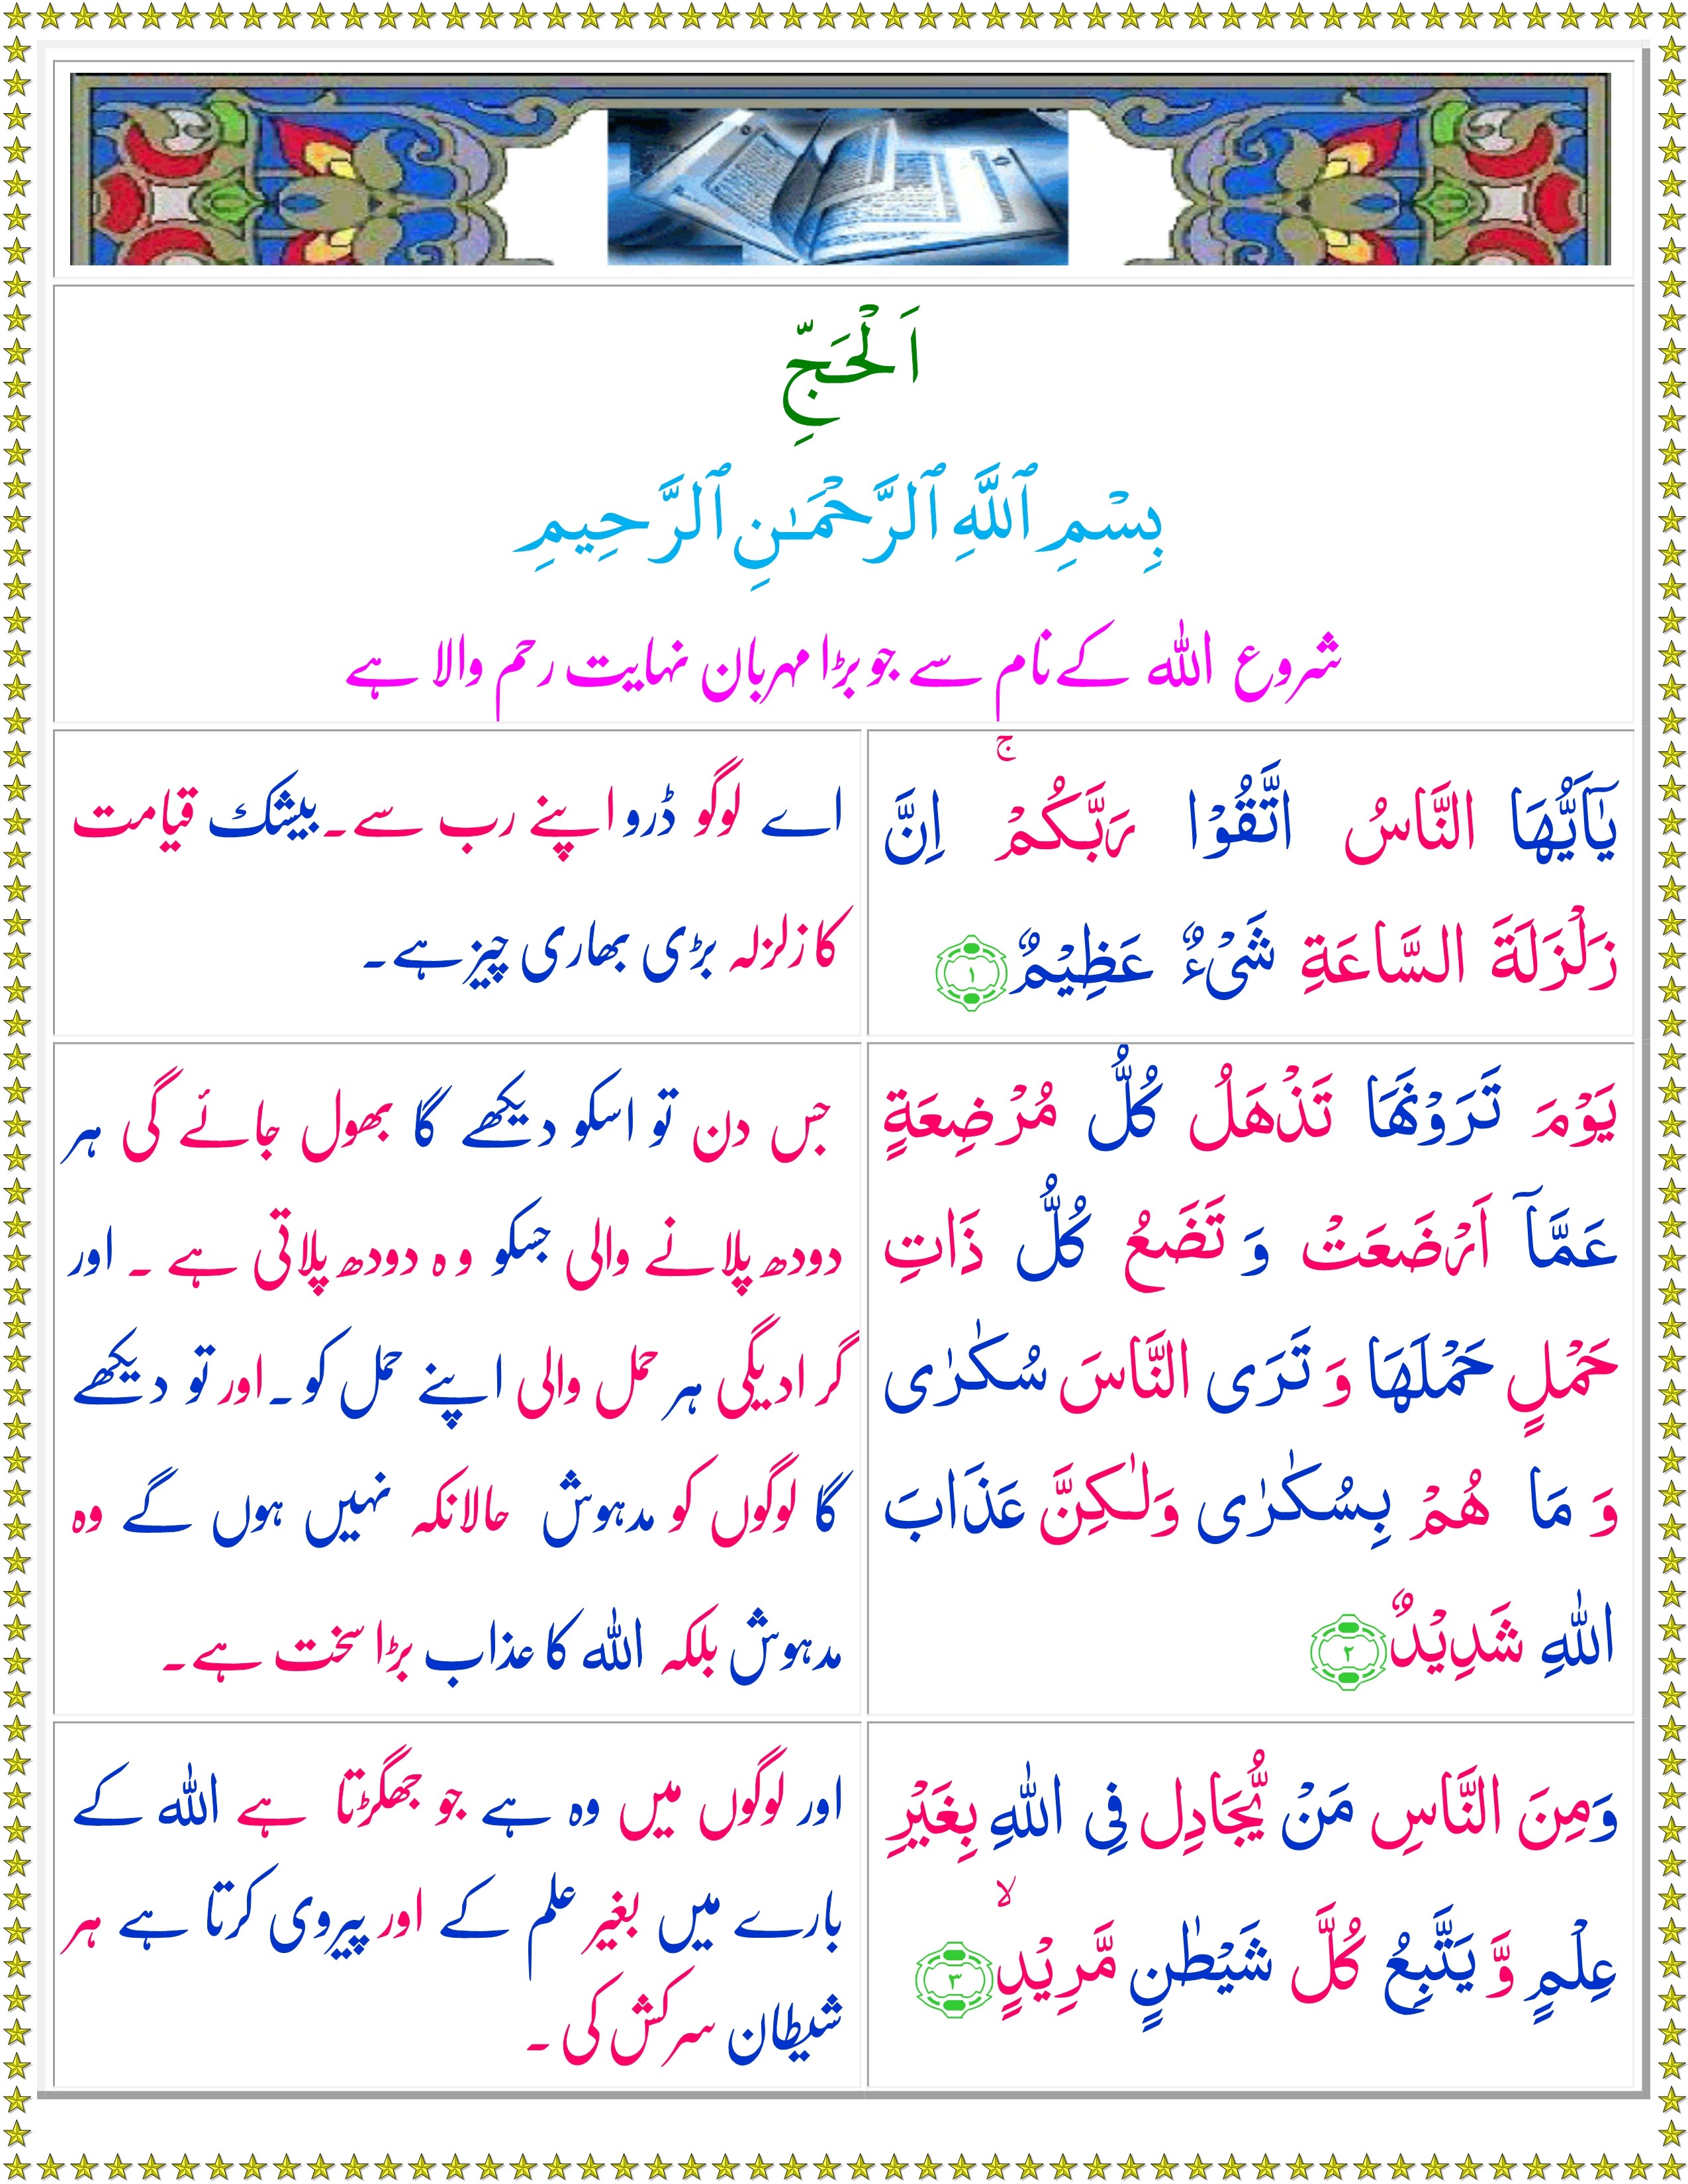 اَلْحَجِّ
بِسْمِ ٱللَّهِ ٱلرَّحْمَـٰنِ ٱلرَّحِيمِ
شروع اللہ کے نام سے جو بڑا مہربان نہایت رحم والا ہے
يٰۤاَيُّهَا النَّاسُ اتَّقُوْا رَبَّكُمْ ۚ اِنَّ
زَلْزَلَةَ السَّاعَةِ شَىْءٌ عَظِيْمٌ ﴿۱﴾
اے لوگو ڈرو اپنے رب سے۔ بیشک قیامت
کا زلزلہ بڑی بھاری چیز ہے۔
يَوْمَ تَرَوْنَهَا تَذْهَلُ كُلُّ مُرْضِعَةٍ
عَمَّاۤ اَرْضَعَتْ وَ تَضَعُ كُلُّ ذَاتِ
حَمْلٍ حَمْلَهَا وَ تَرَى النَّاسَ سُكٰرٰى
وَ مَا هُمْ بِسُكٰرٰى وَلٰـكِنَّ عَذَابَ
اللّٰهِ شَدِيْدٌ ﴿۲﴾
جس دن تو اسکو دیکھے گا بھول جائے گی ہر
دودھ پلانے والی جسکو وہ دودھ پلاتی ہے ۔ اور
گرادیگی ہر حمل والی اپنے حمل کو۔ اور تو دیکھے
گا لوگوں کو مدہوش حالانکہ نہیں ہوں گے وہ
مدہوش بلکہ اللہ کا عذاب بڑا سخت ہے۔
وَمِنَ النَّاسِ مَنْ يُّجَادِلُ فِى اللّٰهِ بِغَيْرِ
عِلْمٍ وَّ يَتَّبِعُ كُلَّ شَيْطٰنٍ مَّرِيْدٍ ۙ ﴿۳﴾
اور لوگوں میں وہ ہے جو جھگڑتا ہے اللہ کے
بارے میں بغیر علم کے اور پیروی کرتا ہے ہر
شیطان سرکش کی ۔